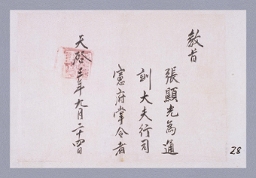 敎旨
張顯光爲通
訓大夫行司
憲府掌令者
天啓三年九月二十四日
28